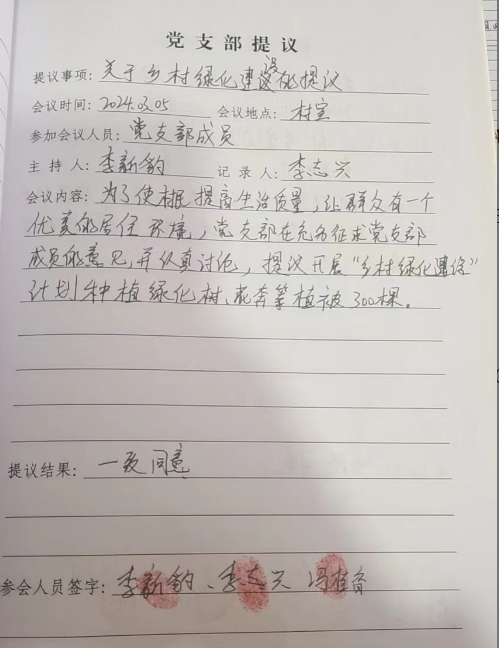 党支部提议
提议事项：关于乡村绿化建设的提议
会议时间：2024.3.05 会议地点：村室
参加会议人员：党支部成员
主持人：李新钓 记录人：李志兴
会议内容：为了使村民提高生活质量，让群众有一个
优美的居住环境，党支部在充分征求党支部
成员的意见，并认真讨论，提议开展“乡村绿化建设”
计划种植绿化树、花卉等植被300棵。
提议结果：一致同意
参会人员签字：李新钓、李志兴 冯